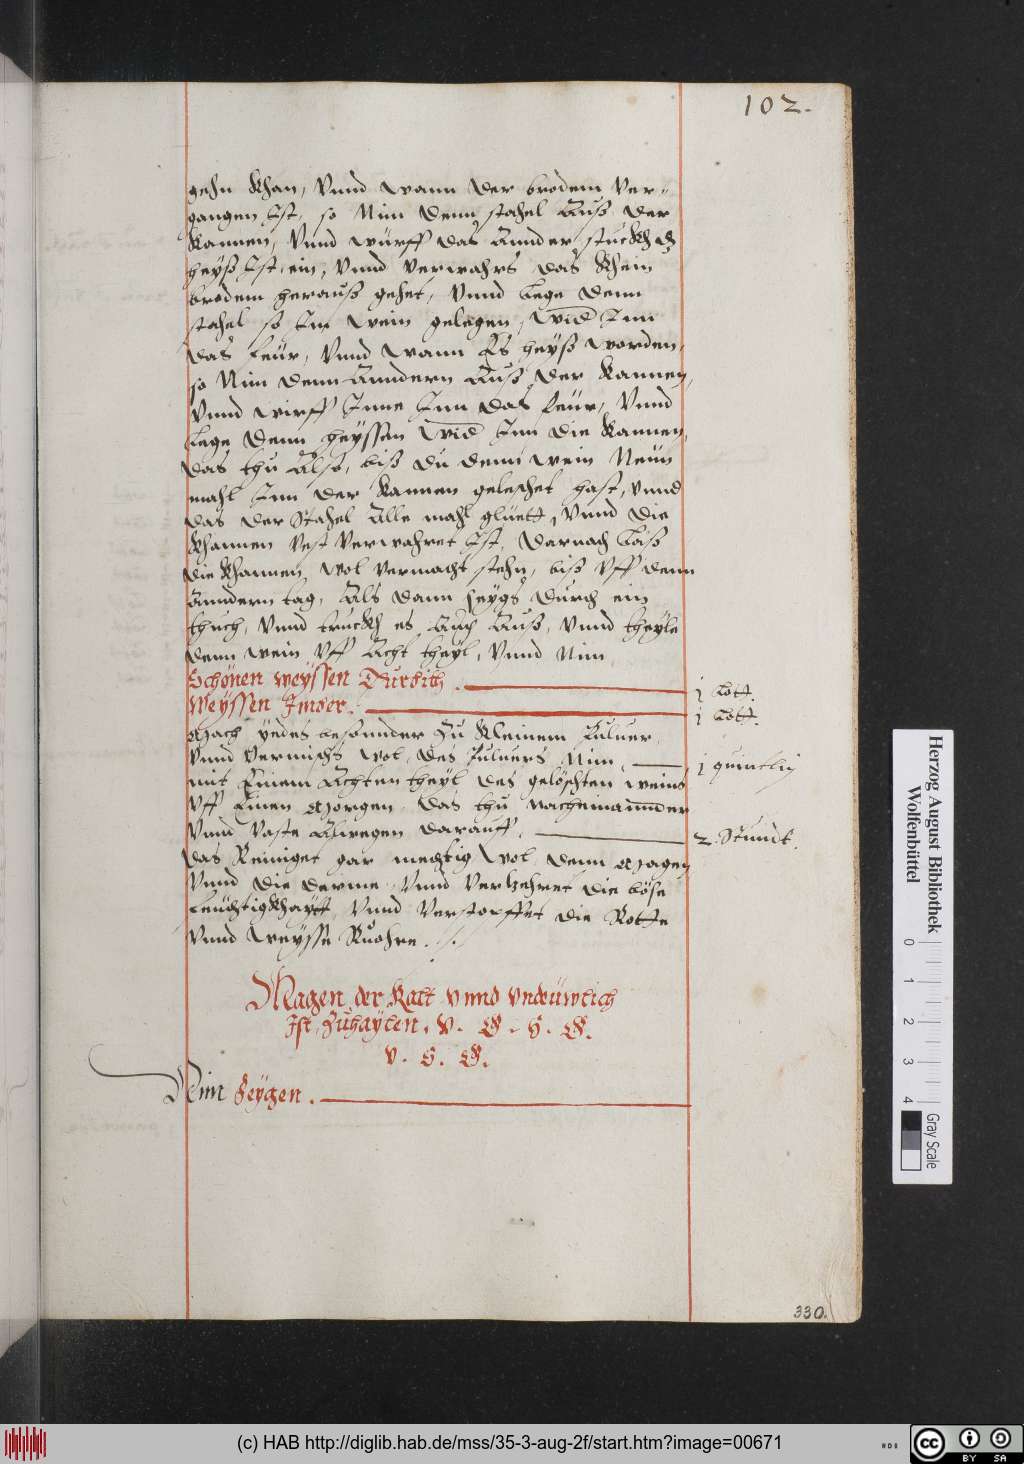 102.
gehn khan, Vnnd wann der brodem Ver-
gangen Ist, so Nim denn stahel Auß der
Kannen, Vnnd würff das Annder stuckh dz
heyß Ist, ein, Vnnd Verwahrs das khein
brodem herauß gehet, Vnnd Lege denn
stahel so Im wein gelegen, wid Inn
das feür, Vnnd wann Es heyß worden,
so Nim denn Anndern Auß der Kannen,
Vnnd wirff Inne Inn das feür, Vnnd
Lege denn heyssen wid Inn die Kannen,
das thu Also, biß du denn wein Neün
mahl Inn der Kannen geleschet hast, vnnd
das der Stahel Alle mahl glüett, Vnnd die
khannen Vest Verwahret Ist, darnach Laß
die khannen wol vermacht stehn, biß Vff denn
Anndern tag, Als dann seygs durch ein
thuch, Vnnd truckh es Auch Auß, Vnnd theyle
denn wein Vff Acht theyl, Vnnd Nim
Schönen weyssen Turbith. j Lott.
Weyssen Imber. j Lott.
Mach yedes besonnder Zu kleinem Puluer
Vnnd Vermischs wol, des Puluers Nim, j quintlin
mit Einem Achten theyl des geløschten weins
Vff Einen Morgen, das thu nachemannder
Vnnd Vaste Alwegen darauff. 2. Stundt.
das Reiniget gar mechtig wol denn Magen
Vnnd die derme, Vnnd Verzehret die böse
feüchtigkhaytt, Vnnd Verstopffet die Rotte
Vnnd weysse Ruohre.
Magen der Kalt vnnd vndeüwlich
Ist, Zuhaylen. V. G. H. G.
V. H. G.
Nim Feygen.
330.
Herzog August Bibliothek
Wolfenbüttel
0 1 2 3 4
Gray Scale
(c) HAB http://diglib.hab.de/mss/35-3-aug-2f/start.htm?image=00671
cc BY SA